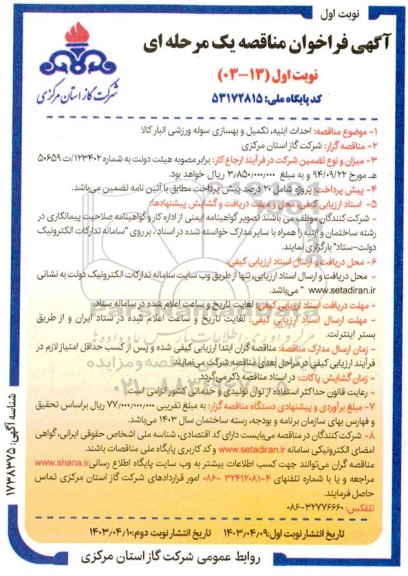 نوبت اول
آگهی فراخوان مناقصه یک مرحله ای
نوبت اول (۱۳-۰۳)
کد پایگاه ملی: ۵۳۱۷۲۸۱۵
شرکت گاز استان مرکزی
۱- موضوع مناقصه: احداث ابنیه، تکمیل و بهسازی سوله ورزشی انبار کالا
۲- مناقصه گزار: شرکت گاز استان مرکزی
۳- میزان و نوع تضمین شرکت در فرآیند ارجاع کار: برابر مصوبه هیئت دولت به شماره ۱۲۳۴۰۲/ت ۵۰۶۵۹
هـ مورخ ۹۴/۰۹/۲۲ و به مبلغ ۳/۸۵۰/۰۰۰/۰۰۰ ریال خواهد بود.
۴- پیش پرداخت: پروژه شامل ۲۰ درصد پیش پرداخت مطابق با آئین نامه تضمین می‌باشد.
۵- اسناد ارزیابی کیفی، محل و مهلت دریافت و گشایش پیشنهادها:
- شرکت کنندگان موظف می باشند تصویر گواهینامه ایمنی از اداره کار و گواهینامه صلاحیت پیمانکاری در
رشته ساختمان و ابنیه را همراه با سایر مدارک خواسته شده در اسناد، بر روی "سامانه تدارکات الکترونیک
دولت-ستاد" بارگزاری نمایند.
۶- محل دریافت و ارسال اسناد ارزیابی کیفی:
- محل دریافت و ارسال اسناد ارزیابی، تنها از طریق وب سایت سامانه تدارکات الکترونیک دولت به نشانی
www.setadiran.ir " می‌باشد.
- مهلت دریافت اسناد ارزیابی کیفی: لغایت تاریخ و ساعت اعلام شده در سامانه ستاد
- مهلت ارسال اسناد ارزیابی کیفی: لغایت تاریخ و ساعت اعلام شده در ستاد ایران و از طریق
بستر اینترنت.
- زمان ارسال مدارک مناقصه: مناقصه گران ابتدا ارزیابی کیفی شده و پس از کسب حداقل امتیاز لازم در
فرآیند ارزیابی کیفی در مراحل بعدی مناقصه شرکت می‌نمایند.
- زمان گشایش پاکات: در اسناد مناقصه ذکر می‌گردد.
- رعایت قانون حداکثر استفاده از توان تولیدی و خدماتی کشور الزامی است.
۷- مبلغ برآوردی و پیشنهادی دستگاه مناقصه گزار: به مبلغ تقریبی ۷۷/۰۰۰/۰۰۰/۰۰۰ ریال براساس تحقیق
و فهارس بهای سازمان برنامه و بودجه، رسته ساختمان سال ۱۴۰۳ می‌باشد.
۸- شرکت کنندگان در مناقصه می‌بایست دارای کد اقتصادی، شناسه ملی اشخاص حقوقی ایرانی، گواهی
امضای الکترونیکی سامانه www.setadiran.ir و کد کاربری پایگاه ملی مناقصات باشند.
مناقصه گران می‌توانند جهت کسب اطلاعات بیشتر به وب سایت پایگاه اطلاع رسانی www.shana.ir
مراجعه و یا با شماره تلفنهای ۴-۳۲۴۱۲۰۸۱ -۰۸۶ امور قراردادهای شرکت گاز استان مرکزی تماس
حاصل فرمایند.
تلفکس: ۳۲۷۷۶۶۶۰-۰۸۶
تاریخ انتشار نوبت اول: ۱۴۰۳/۰۴/۰۹ تاریخ انتشار نوبت دوم: ۱۴۰۳/۰۴/۱۰
روابط عمومی شرکت گاز استان مرکزی
شناسه آگهی: ۱۷۳۸۳۷۵